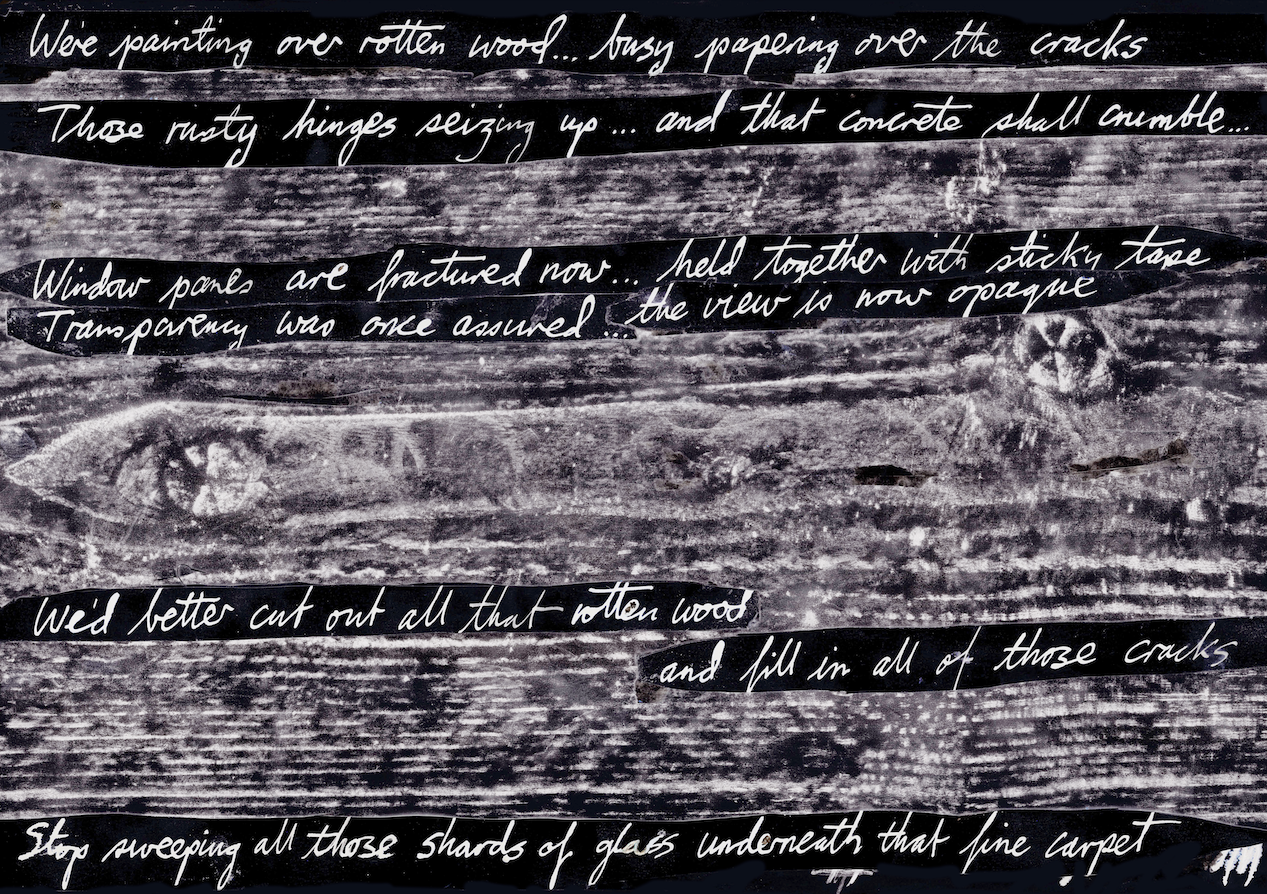 We're painting over rotten wood... busy papering over the cracks
Those rusty hinges seizing up... and that concrete shall crumble...
Window panes are fractured now... held together with sticky tape
Transparency was once assured... the view is now opaque
We'd better cut out all that rotten wood
and fill in all of those cracks
Stop sweeping all those shards of glass underneath that fine carpet